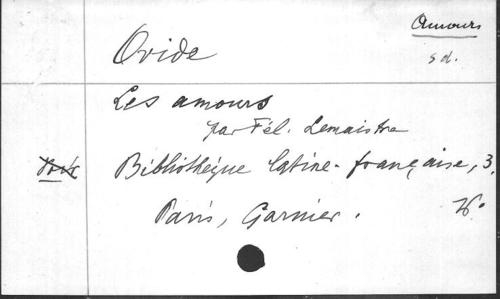 Amours
Ovide
s d.
Les amours
par Fél. Lemaistre
Bibliothèque latine-française, 3.
Paris, Garnier.